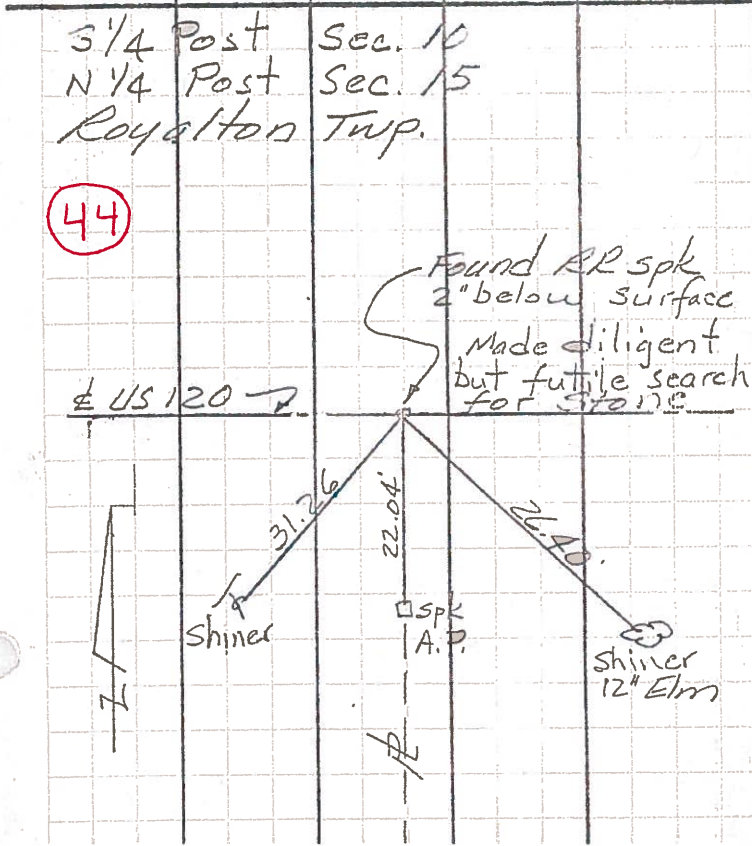 S 1/4 Post Sec. 10
N 1/4 Post Sec. 15
Royalton Twp.
44
Found RR spk
2" below surface
Made diligent
but futile search
for Stone
℄ US 120
31.26
22.04'
26.40
Shiner
Spk
A.P.
Shiner
12" Elm
N
℄